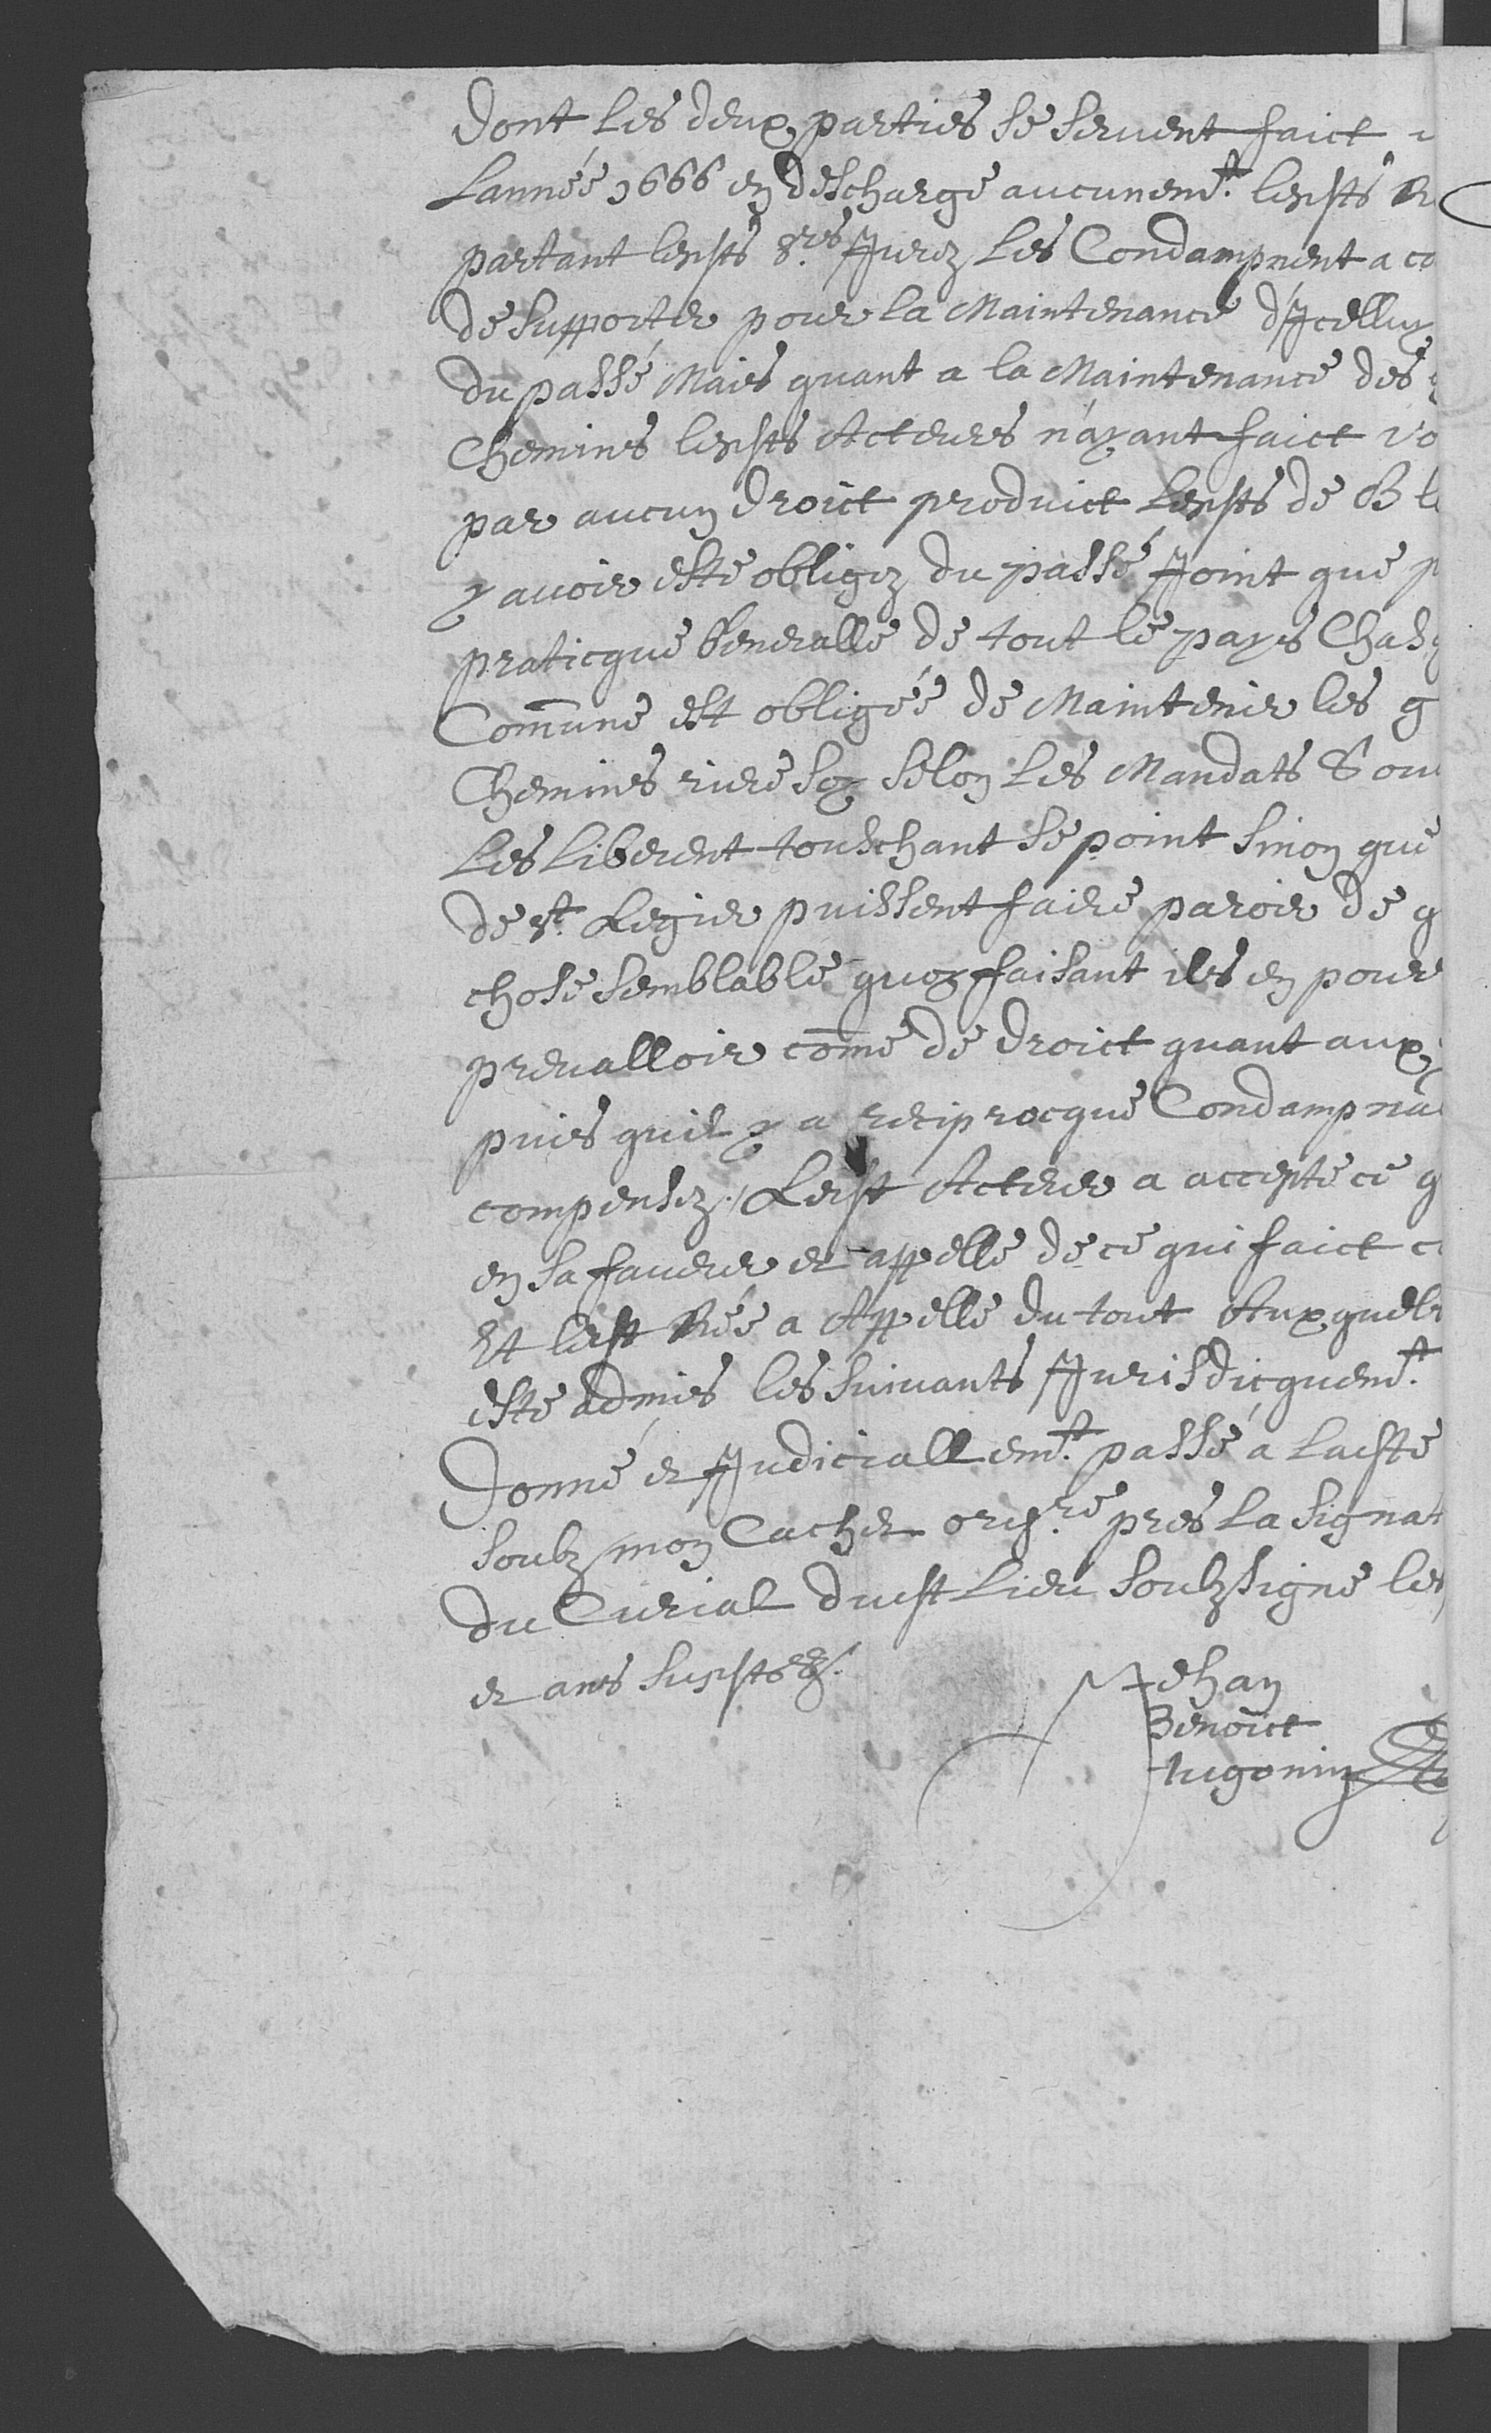 dont les deux parties se seruent faict
Lannée 1666 en descharge aucunem.t lesdsts R
partant lesdsts Srs Jurez Les Condampnent a co
de supporter pour la Maintenance d'Jcelluy
du passé Mais quant a la Maintenance des
Chemins lesdsts Acteurs n'ayant faict vo
par aucun droict produict lesdsts de Bl
y auoir este obligez du passé Joint que p
praticque Generalle de tout le pays Chasq
Commune est obligée de Maintenir les g
Chemins riere soy selon les Mandats Sou
Les Liberent touschant se point sinon que
de St. Legier puissent faire paroir de q
chose semblable quoy faisant ils en pour
preualloir come de droict quant aux
puis quil y a reciprocque Condampna
compensez. Ledst Acteur a accepte ce q
en sa faueur et appelle de ce qui faict c
Et ledst Rée a Appelle du tout Auxquels
este admis les suiuants Jurisdicquem.t
Donné et Judiciallem.t passé a Ladste
soubz mon Cachet ord.re pres La signat
du Curial dudst Lieu soubzsigne les
et ans susdsts
Jehan
Benoict
hugonin